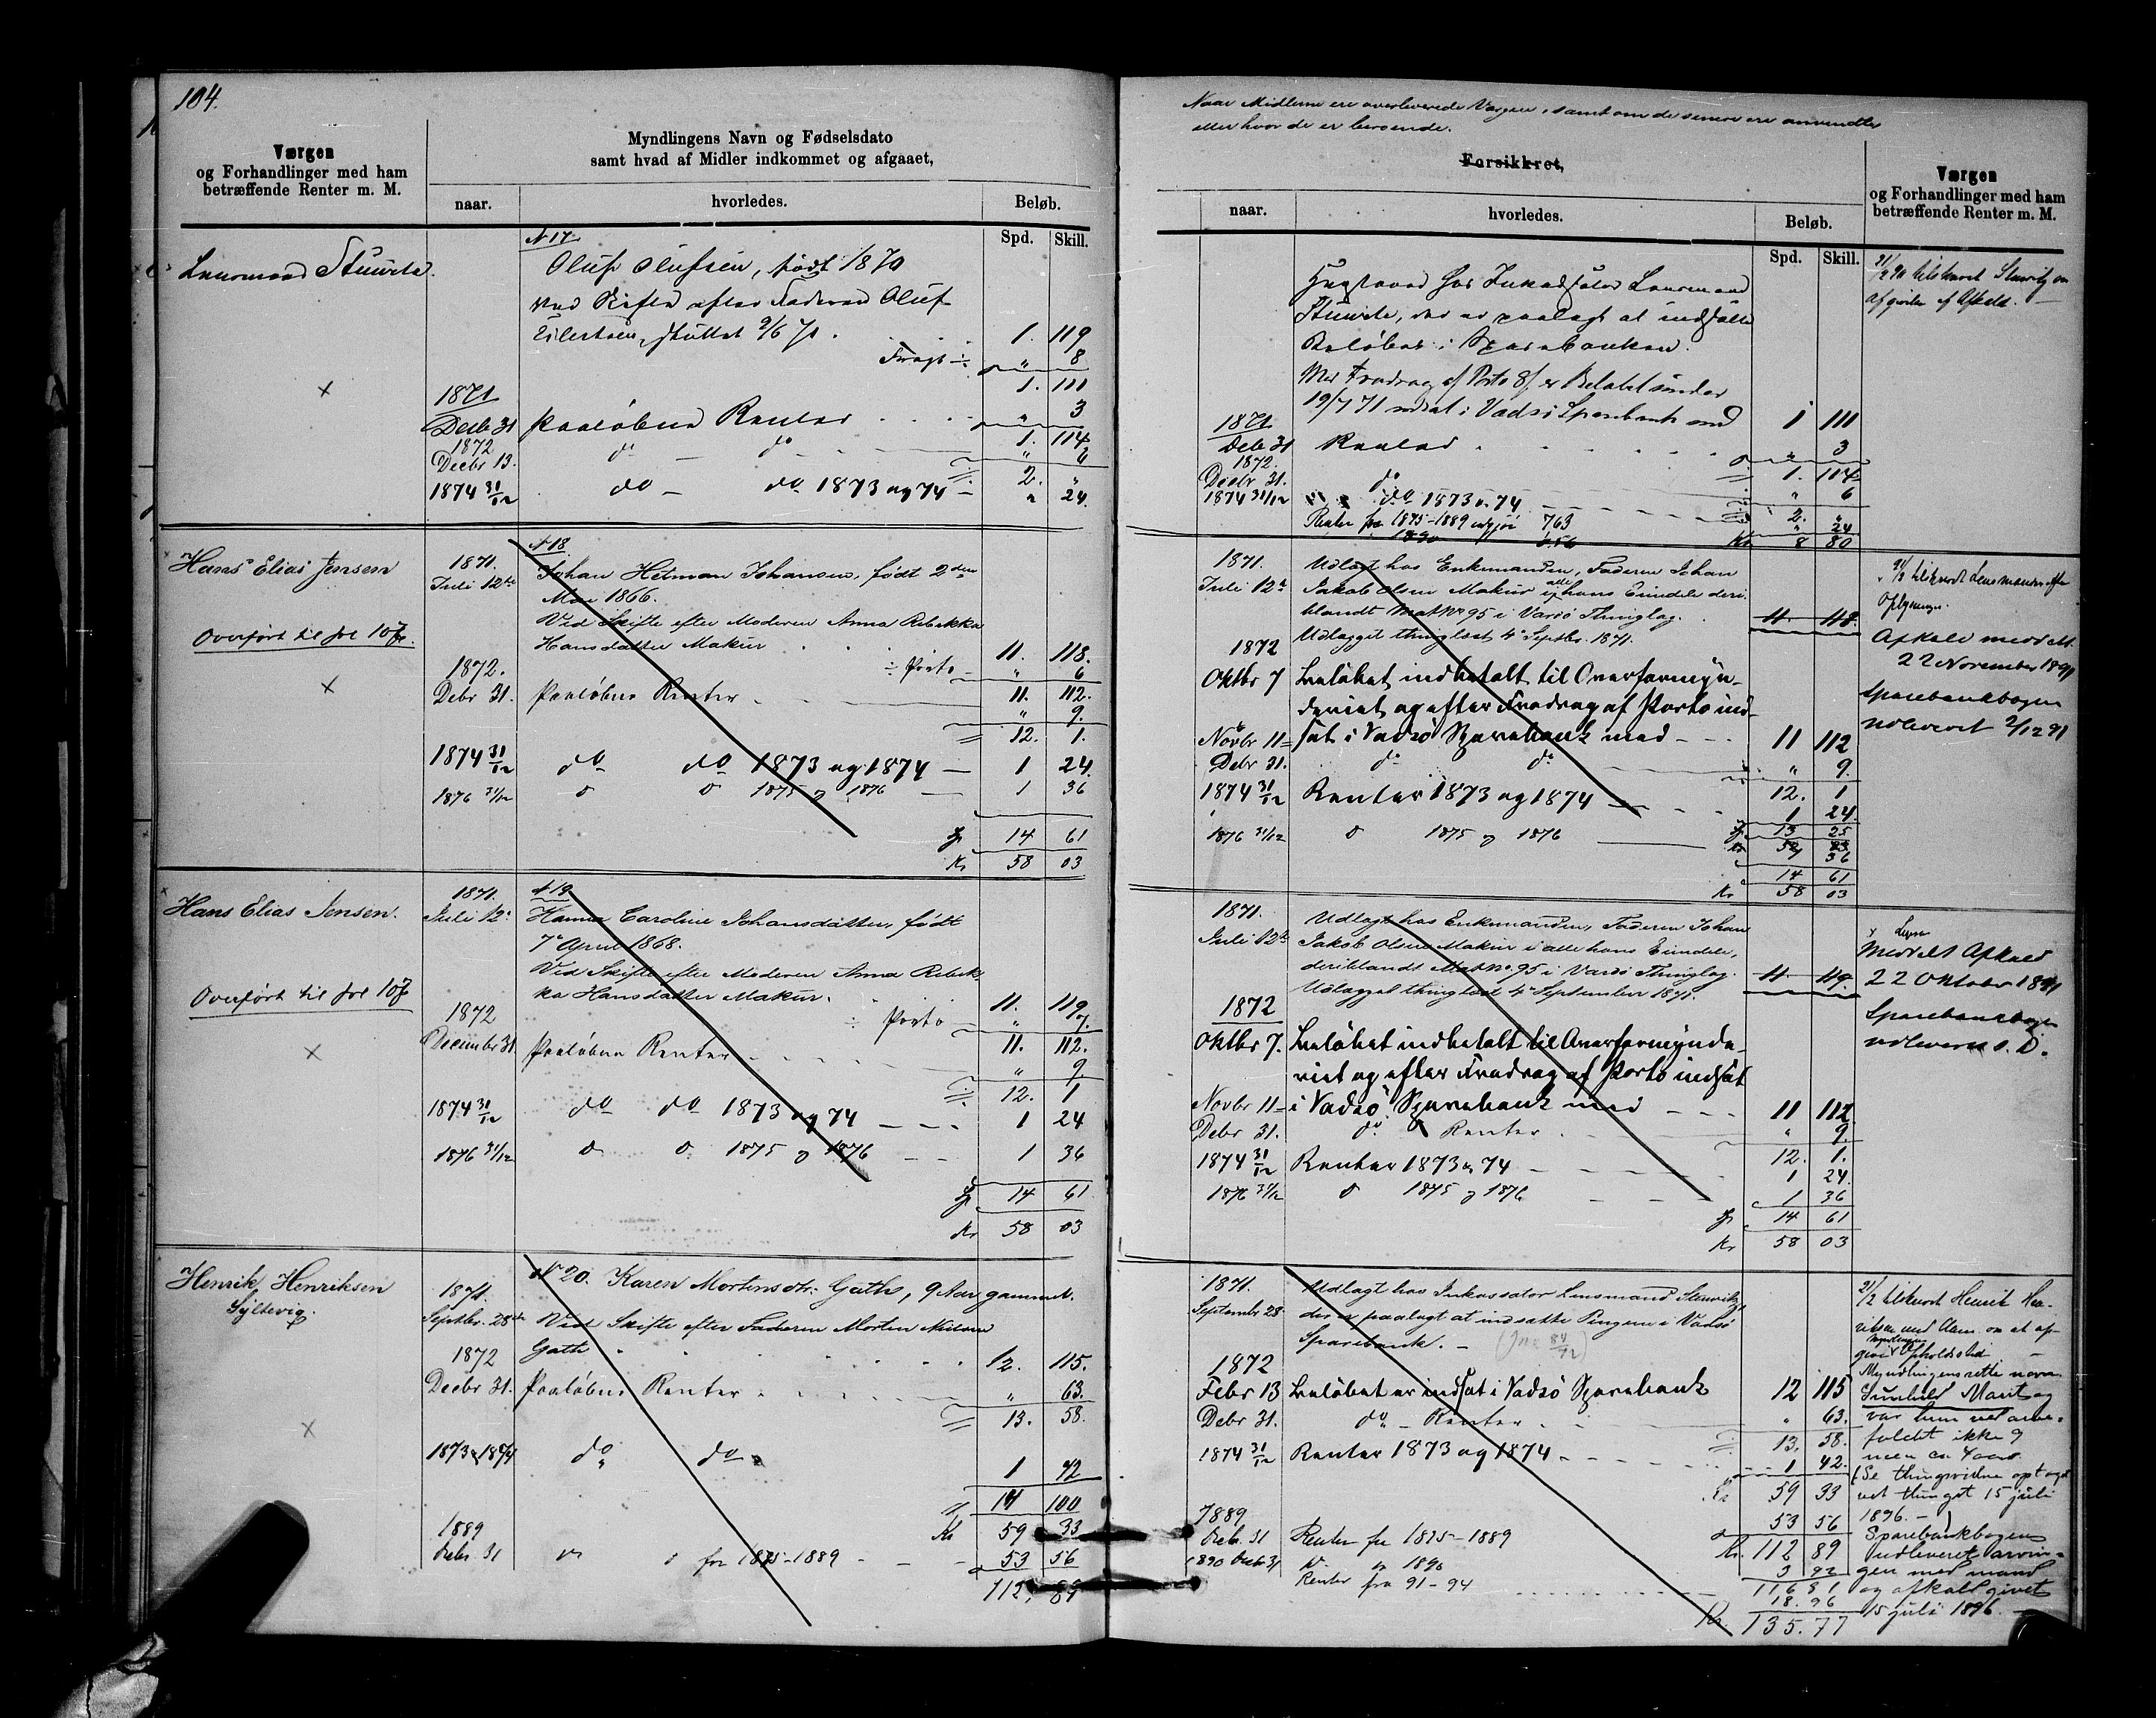 104.
Værgen
og Forhandlinger med ham
betræffende Renter m. M.
Myndlingens Navn og Fødselsdato
samt hvad af Midler indkommet og afgaaet,
naar.
hvorledes.
Beløb.
Spd. Skill.
N 17.
Lensmand
Oluf Olufsen, født 1870
ved Skifte efter Faderen Oluf
sluttet 9/6 71. 1. 119
Fragt ÷ " 8
1. 111
1871
Decbr 31 Paaløbne Renter " 3
1. 114
1872
Decbr 13. do — do " 6
2. "
1874 31/12 do — do 1873 og 74 — " 24.
Hans Elias Jensen
Overført til fol 107.
N 18.
1871.
Juli 12te Johan Hitman Johansen, født 2den
Mai 1866.
Ved Skifte efter Moderen Anna Rebekka
Hansdatter Makur 11. 118.
÷ Porto — " 6
1872.
Debr 31. Paaløbne Renter 11. 112.
" 9.
12. 1.
1874 31/12 do do 1873 og 1874 — 1 24.
1876 31/12 do do 1875 og 1876 — 1 36
14 61
Kr 58 03
Hans Elias Jensen.
Overført til fol 107
N 19
1871.
Juli 12. Hanna Caroline Johansdatter, født
7de April 1868.
Ved Skifte efter Moderen Anna Rebek-
ka Hansdatter Makur. 11. 119
÷ Porto — " 7.
1872
Decembr 31. Paaløbne Renter 11. 112.
" 9
12. 1
1874 31/12 do do 1873 og 74 — 1 24
1876 31/12 do do 1875 og 1876 — 1 36
14 61
Kr 58 03
Henrik Henriksen
Syltevig.
N 20. Karen Mortensdtr. Gath, 9 Aar gammel.
1871.
Septbr. 28de Ved Skifte efter Faderen Morten Nielsen
Gath 12. 115.
1872
Decbr 31. Paaløbne Renter " 63.
13. 58.
1873 & 1874 do do 1 42
14 100
Kr 59 33
1889
Debr. 31 do do for 1875–1889 53 56
112. 89
Naar Midlerne ere overleverede Værgen, samt om de senere ere anvendte
eller hvor de er beroende.
Forsikret,
naar.
hvorledes.
Beløb.
Spd. Skill.
Værgen
og Forhandlinger med ham
betræffende Renter m. M.
hos Lensmand
der er paalagt at indsætte
Beløbet i Sparebanken.
Med Fradrag af Porto 8 s er Beløbet under
19/7 71 indsat i Vadsø Sparebank med 1 111
1871
Debr 31 Renter " 3
1. 114
1872.
Decbr 31. do " 6
2. "
1874 31/12 do 1873 & 74 " 24
Renter fra 1875–1889 udgjør 763
1890
Kr 8 80
1871.
Juli 12te Udlagt hos Enkemanden, Faderen Johan
Jakob Olsen Makur i alle hans Eiendele deri-
blandt Mat No 95 i Vardø Thinglag. 11. 118.
Udlægget thinglæst 4de Septbr. 1871.
1872
Oktbr 7 Beløbet indbetalt til Overformyn-
deriet og efter Fradrag af Porto ind-
Novbr 11 — sat i Vadsø Sparebank med — 11 112
Debr 31. do do " 9.
12. 1
1874 31/12 Renter 1873 og 1874 — 1 24.
13 25
1876 31/12 do 1875 og 1876 — 1 36
14 61
Kr 58 03
Afkald meddelt
22 November 1891
Sparebankbogen
udleveret 2/12 91
1871.
Juli 12te Udlagt hos Enkemanden, Faderen Johan
Jakob Olsen Makur i alle hans Eiendele,
deriblandt Mat No 95 i Vardø Thinglag. 11 119.
Udlægget thinglæst 4de September 1871.
1872
Oktbr 7. Beløbet indbetalt til Overformynde-
riet og efter Fradrag af Porto indsat
Novbr 11 — i Vadsø Sparebank med — 11 112.
Debr 31. do Renter " 9.
12. 1.
1874 31/12 Renter 1873 & 74 — 1 24.
1876 31/12 do 1875 og 1876 — 1 36
14 61
Kr 58 03
Meddelt Afkald
22 Oktober 1891
Sparebankbogen
udleveret s. D.
1871.
Septembr 28 Udlagt hos Inkassator Lensmand
der er paalagt at indsætte Pengene i Vadsø
Sparebank. —
1872
Febr 13 Beløbet er indsat i Vadsø Sparebank 12 115
Debr 31. do — Renter " 63.
13. 58.
1874 31/12 Renter 1873 og 1874 — 1 42.
Kr 59 33
1889
Debr. 31 Renter fra 1875–1889 53 56
Kr. 112 89
1890 Debr 31 do 1890 3 92
116 81
Renter fra 91–94 18.96
Kr. 135.77
21/2 tilskrevet Henrik Hen-
riksen med om at op-
give Myndlingens Opholdssted —
Myndlingens rette navn
Marit og
var hun ved arve-
faldet ikke 9
men ca 4 aar.
(Se thingsvidne optaget
ved thinget 15 juli
1896. —)
Sparebankbogen
udleveret arvin-
gen med mand
og afkald givet
15 juli 1896. —